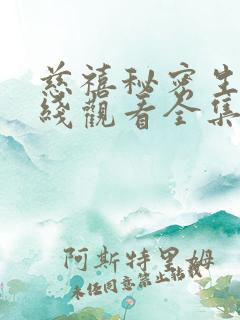 慈禧秘密生
綫觀看全集
阿斯特里姆
未经同意禁止转载